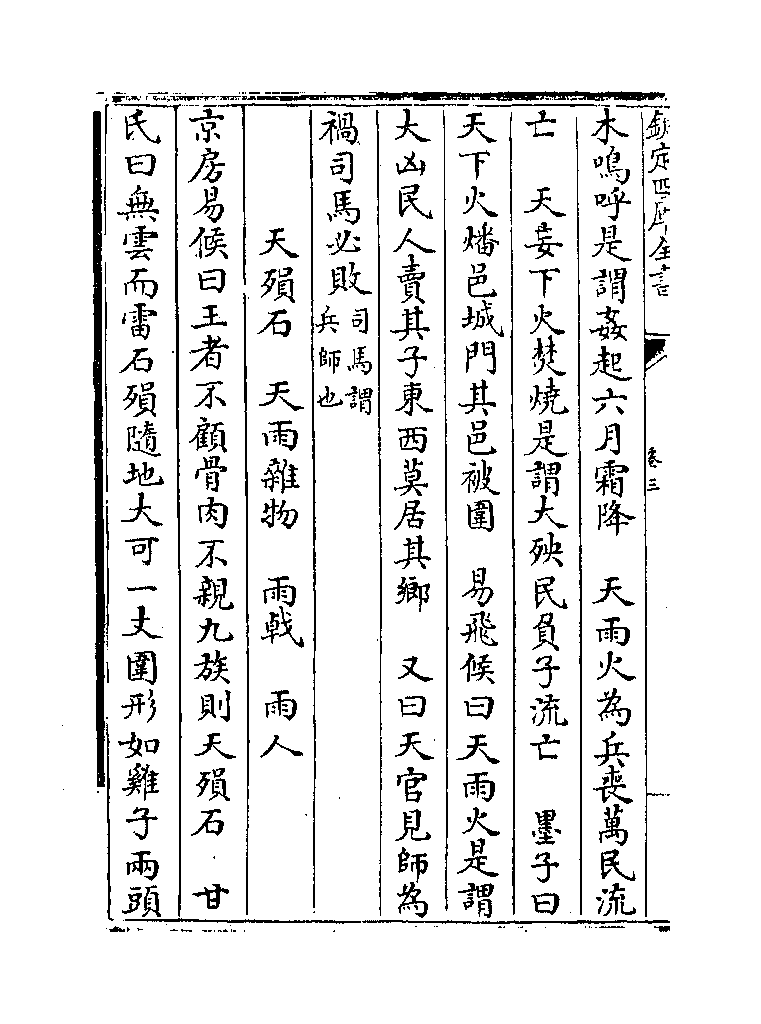 欽定四庫全書
卷三
木鳴呼是謂姦起六月霜降　天雨火為兵喪萬民流
亡　天妄下火焚燒是謂大殃民負子流亡　墨子曰
天下火燔邑城門其邑被圍　易飛候曰天雨火是謂
大凶民人賣其子東西莫居其鄉　又曰天官見師為
禍司馬必敗司馬謂兵師也
天殞石　天雨雜物　雨戟　雨人
京房易候曰王者不顧骨肉不親九族則天殞石　甘
氏曰無雲而雷石殞隨地大可一丈圍形如雞子兩頭